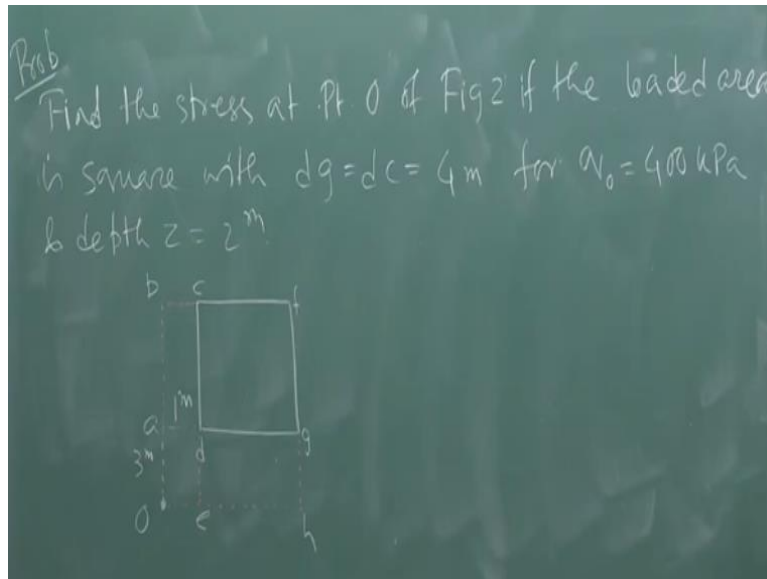 Prob
Find the stress at Pt. O of Fig 2 if the loaded area
is square with dg = dc = 4m for q₀ = 400 kPa
& depth z = 2 m
b c f
1 m
a d g
3 m
O e h